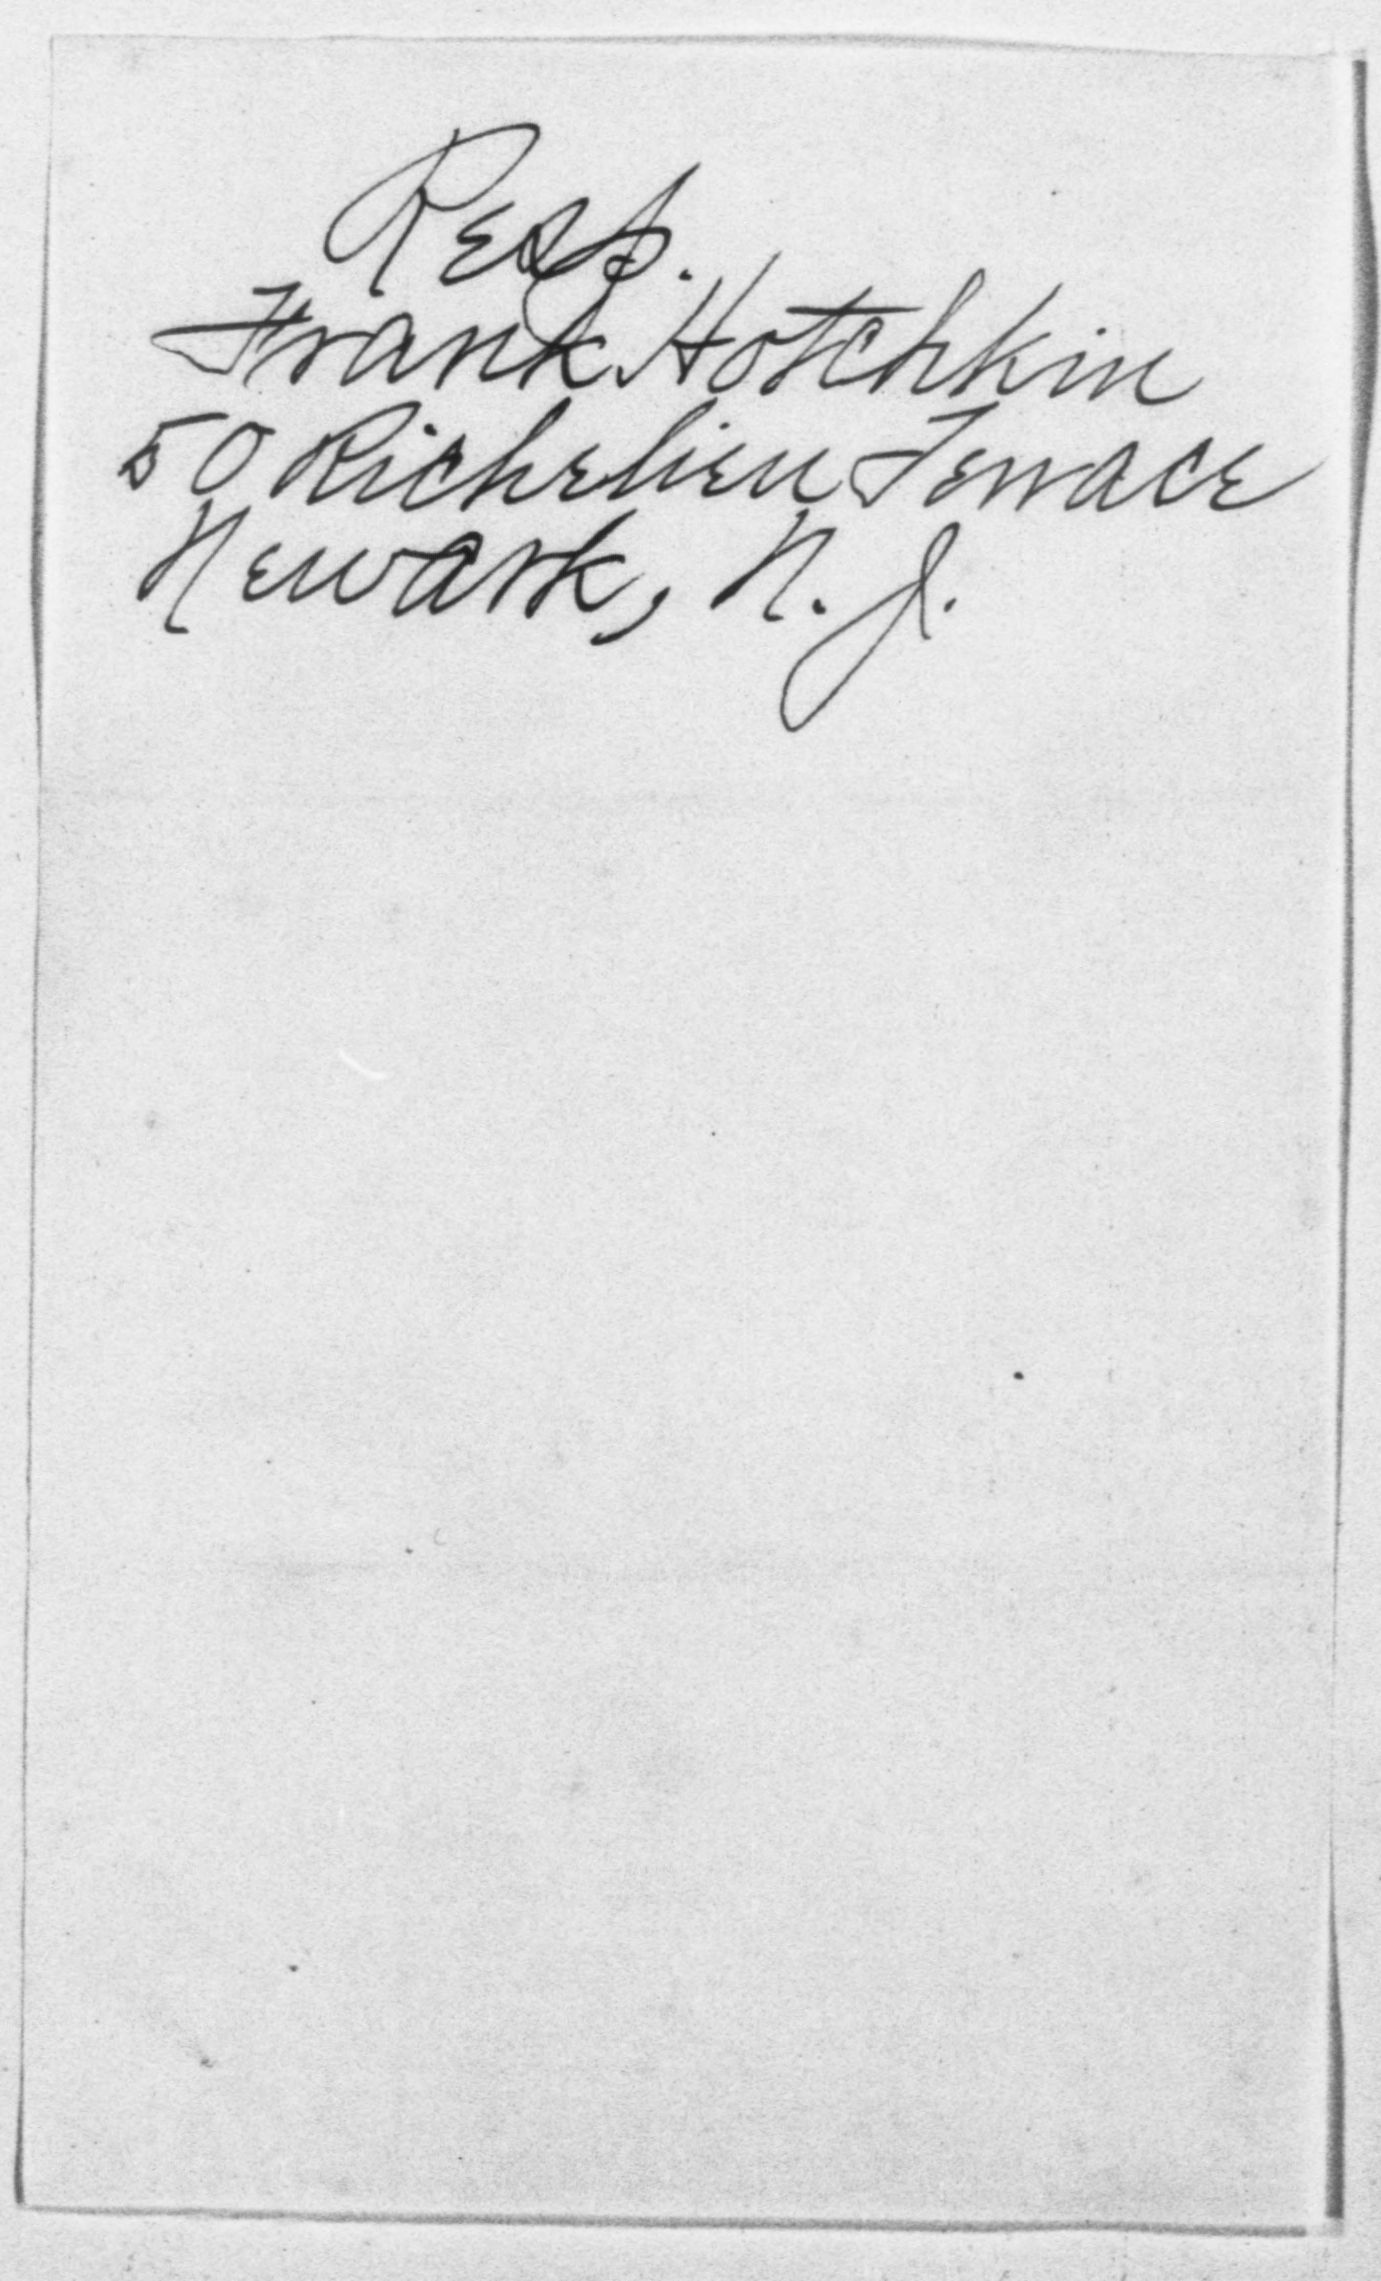 Resp.
Frank Hotchkin
50 Richelieu Terrace
Newark, N. J.